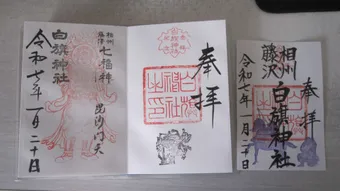 奉拝
白旗神社之印
相州
藤沢
七福神
毘沙門天
白旗神社
令和七年一月二十日
奉拝
相州
藤沢
白旗神社
令和七年一月二十日